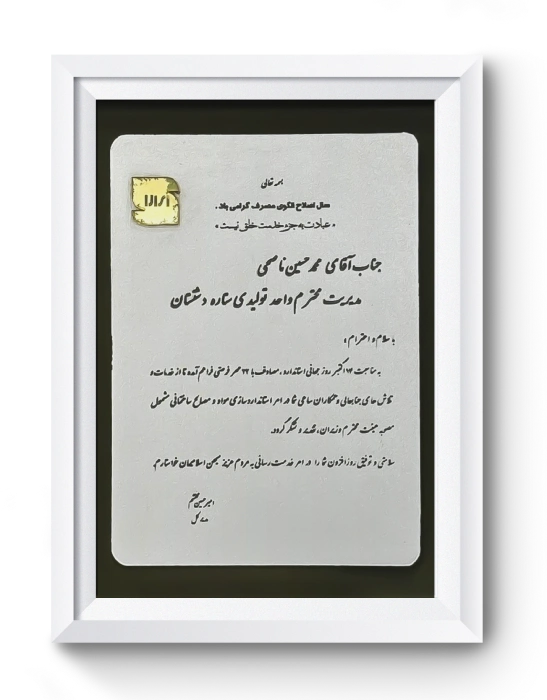 بسمه تعالی
سال اصلاح الگوی مصرف گرامی باد.
«عبادت به جز خدمت خلق نیست»
جناب آقای محمد حسین ناصحی
مدیریت محترم واحد تولیدی ستاره دشتستان
با سلام و احترام؛
به مناسبت ۱۴ اکتبر روز جهانی استاندارد، مصادف با ۲۲ مهر فرصتی فراهم آمده تا از خدمات و
تلاش های جنابعالی و همکاران ساعی شما در امر استانداردسازی مواد و مصالح ساختمانی مشمول
مصوبه هیئت محترم وزیران، تقدیر و تشکر گردد.
سلامتی و توفیق روزافزون شما را در امر خدمت رسانی به مردم عزیز میهن اسلامیمان خواستارم.
امیر حسین
مدیر کل